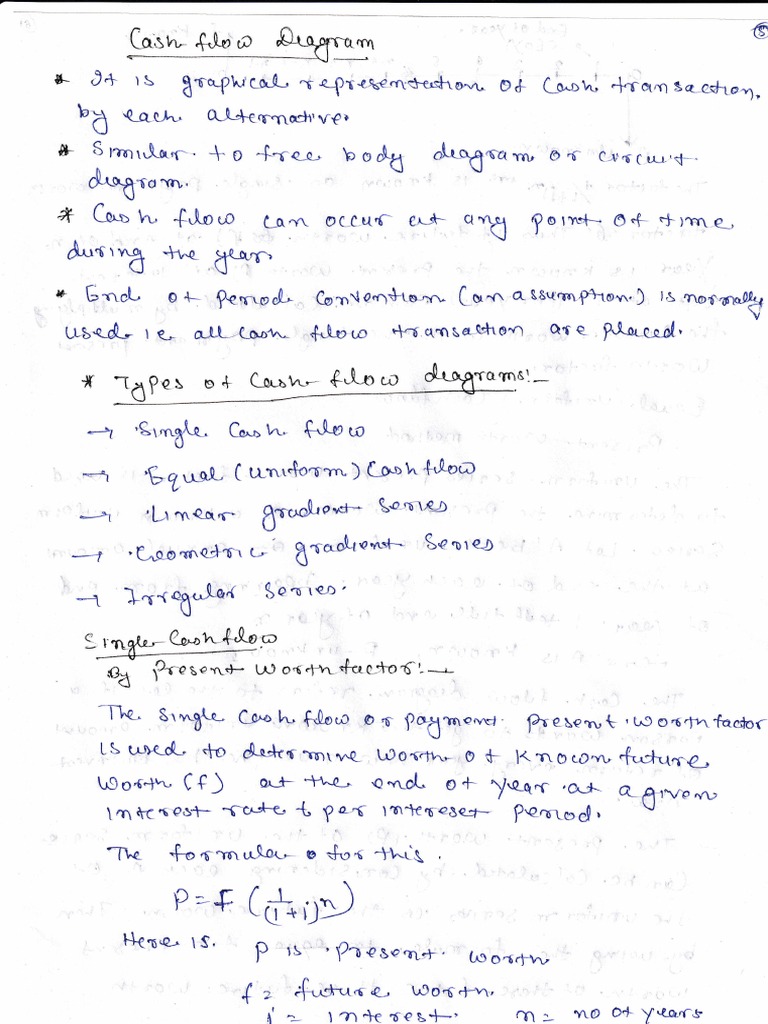 5
Cash flow Diagram
* It is graphical representation of Cash transaction.
by each alternative.
* Similar to free body diagram or circuit
diagram.
* Cash flow can occur at any point of time
during the year.
* End of period convention (an assumption) is normally
used. i.e all cash flow transaction are placed.
* Types of Cash flow diagrams:-
→ Single Cash flow
→ Equal (uniform) Cash flow
→ Linear gradient Series
→ Geometric gradient Series
→ Irregular Series.
Single Cash flow
By Present worth factor:-
The single cash flow or payment present worth factor
is used to determine worth of known future
worth (f) at the end of year at a given
interest rate i per intereset period.
The formula for this.
P = F (1/(1+i)^n)
Here is. P is present worth
f = future worth.
i = interest. n = no of years